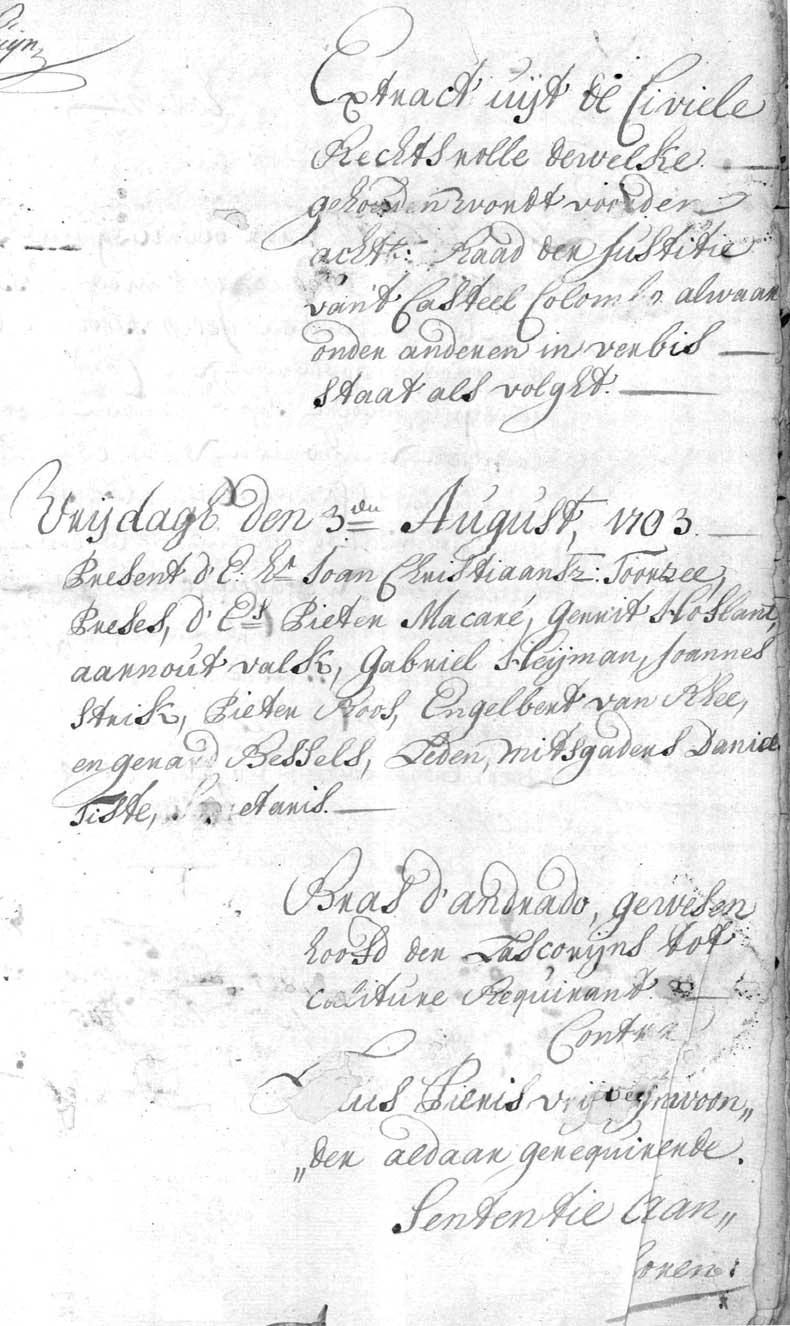 Extract uijt de Civiele
Rechts rolle dewelke
gehouden wordt voor den
achtb: Raad der Justitie
van't Casteel Colombo alwaar
onder anderen in verbis
staat als volght.
Vrijdagh den 3den August, 1703.
Present d'E: hr Joan Christiaansz: Toorzee,
Preses, d'Es Pieter Macaré, Gerrit
aarnout valk, Gabriel Joannes
strik, Pieter Roos, Engelbert van Rhee,
en gerard Bessels, Leden, mitsgaders Daniel
Tiste,
Bras d'andrado, gewesen
hoofd der Lascorijns tot
caliture Requirant.
Contra
Pieris
„der aldaar gerequireerde.
Sententie aan„
horen: